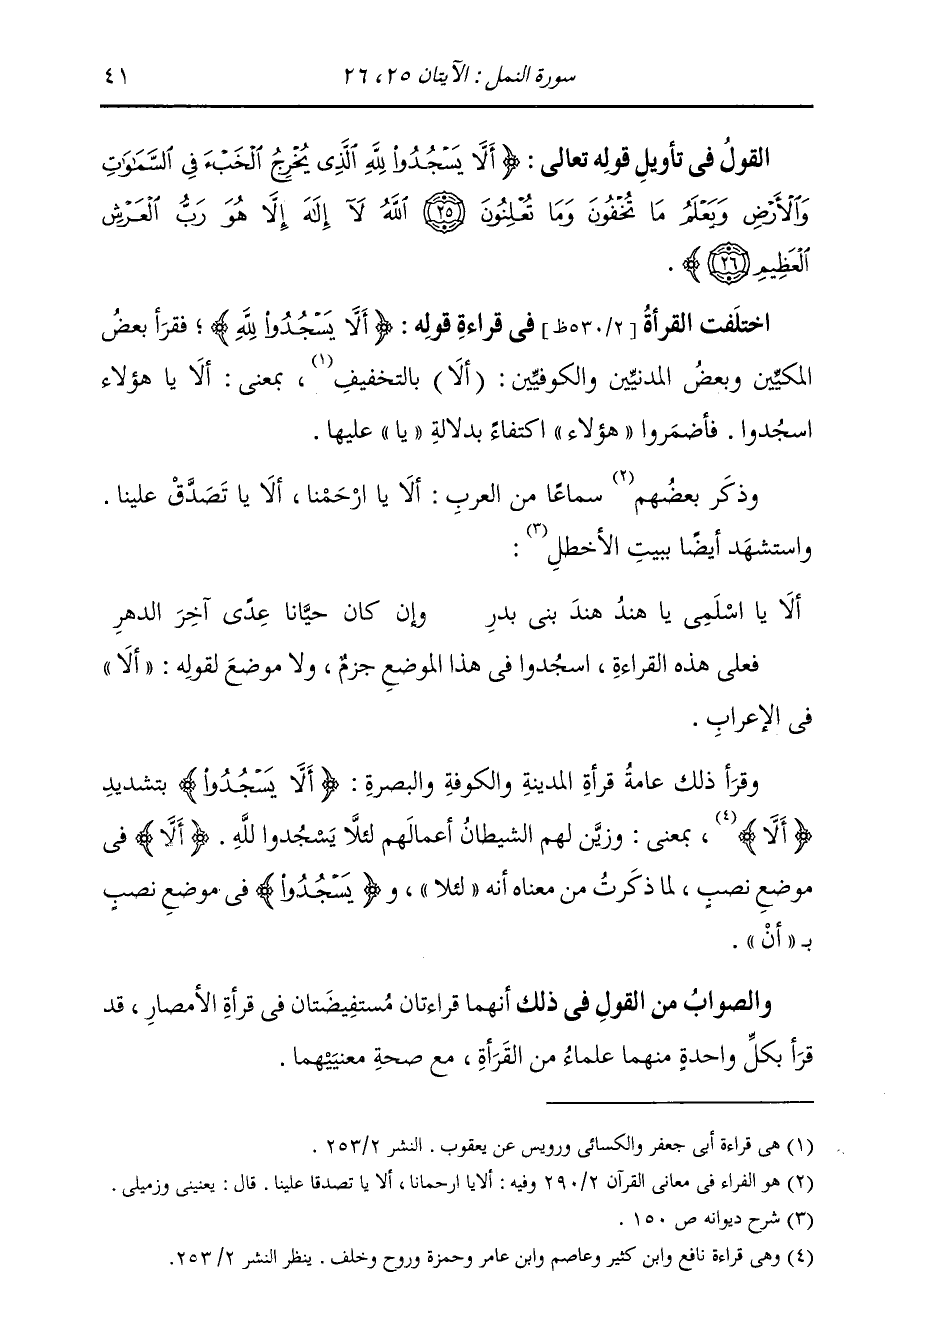 سورة النمل : الآيتان ٢٥، ٢٦ ٤١
القولُ فى تأويلِ قولِه تعالى : ﴿ أَلَّا يَسْجُدُوا۟ لِلَّهِ ٱلَّذِى يُخْرِجُ ٱلْخَبْءَ فِى ٱلسَّمَٰوَٰتِ
وَٱلْأَرْضِ وَيَعْلَمُ مَا تُخْفُونَ وَمَا تُعْلِنُونَ ﴿٢٥﴾ ٱللَّهُ لَآ إِلَٰهَ إِلَّا هُوَ رَبُّ ٱلْعَرْشِ
ٱلْعَظِيمِ ﴿٢٦﴾ ﴾ .
اختلَفت القرأةُ [٥٣٠/٢ظ] فى قراءةِ قولِه : ﴿ أَلَّا يَسْجُدُوا۟ لِلَّهِ ﴾ ؛ فقرَأ بعضُ
المكيِّين وبعضُ المدنيِّين والكوفيِّين : (أَلَا) بالتخفيفِ(١) ، بمعنى : ألَا يا هؤلاء
اسجُدوا . فأضمَروا « هؤلاء » اكتفاءً بدلالةِ « يا » عليها .
وذكَر بعضُهم(٢) سماعًا من العربِ : ألَا يا ارْحَمْنا ، ألَا يا تَصَدَّقْ علينا .
واستشهَد أيضًا ببيتِ الأخطلِ(٣) :
ألَا يا اسْلَمِى يا هندُ هندَ بنى بدرِ وإن كان حيَّانا عِدًى آخِرَ الدهرِ
فعلى هذه القراءةِ ، اسجُدوا فى هذا الموضعِ جزمٌ ، ولا موضعَ لقولِه : « ألَا »
فى الإعرابِ .
وقرَأ ذلك عامةُ قرأةِ المدينةِ والكوفةِ والبصرةِ : ﴿ أَلَّا يَسْجُدُوا۟ ﴾ بتشديدِ
﴿ أَلَّا ﴾(٤) ، بمعنى : وزيَّن لهم الشيطانُ أعمالَهم لئلَّا يَسْجُدوا للَّهِ . ﴿ أَلَّا ﴾ فى
موضعِ نصبٍ ، لما ذكَرتُ من معناه أنه « لئلا » ، و ﴿ يَسْجُدُوا۟ ﴾ فى موضعِ نصبٍ
بـ « أنْ » .
والصوابُ من القولِ فى ذلك أنهما قراءتان مُستفِيضَتان فى قرأةِ الأمصارِ ، قد
قرَأ بكلِّ واحدةٍ منهما علماءُ من القَرَأةِ ، مع صحةِ معنيَيْهما .
(١) هى قراءة أبى جعفر والكسائى ورويس عن يعقوب . النشر ٢٥٣/٢ .
(٢) هو الفراء فى معانى القرآن ٢٩٠/٢ وفيه : ألايا ارحمانا ، ألا يا تصدقا علينا . قال : يعنينى وزميلى .
(٣) شرح ديوانه ص ١٥٠ .
(٤) وهى قراءة نافع وابن كثير وعاصم وابن عامر وحمزة وروح وخلف . ينظر النشر ٢/ ٢٥٣.